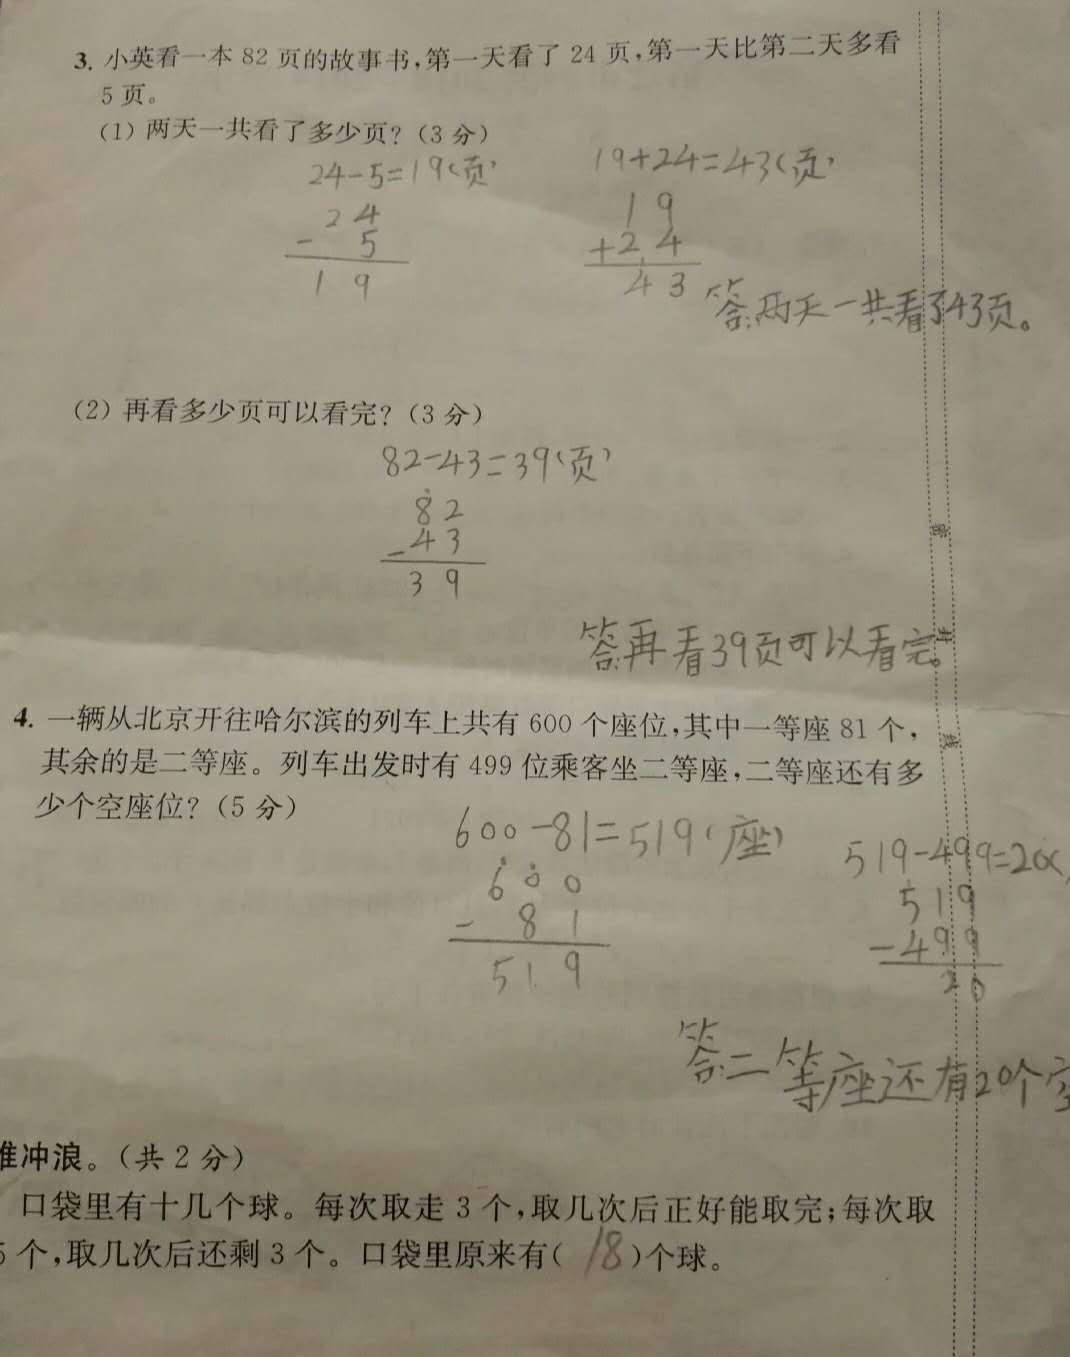 3. 小英看一本 82 页的故事书,第一天看了 24 页,第一天比第二天多看
5 页。
(1) 两天一共看了多少页? (3 分)
24-5=19(页)
19+24=43(页)
24
- 5
19
19
+24
43
答:两天一共看了43页。
(2) 再看多少页可以看完? (3 分)
82-43=39(页)
82
-43
39
密
答:再看39页可以看完。
封
4. 一辆从北京开往哈尔滨的列车上共有 600 个座位,其中一等座 81 个,
线
其余的是二等座。列车出发时有 499 位乘客坐二等座,二等座还有多
少个空座位? (5 分)
600-81=519(座)
519-499=20(
600
- 81
519
519
-499
20
答:二等座还有20个空
冲浪。(共 2 分)
口袋里有十几个球。每次取走 3 个,取几次后正好能取完;每次取
5 个,取几次后还剩 3 个。口袋里原来有( 18 )个球。